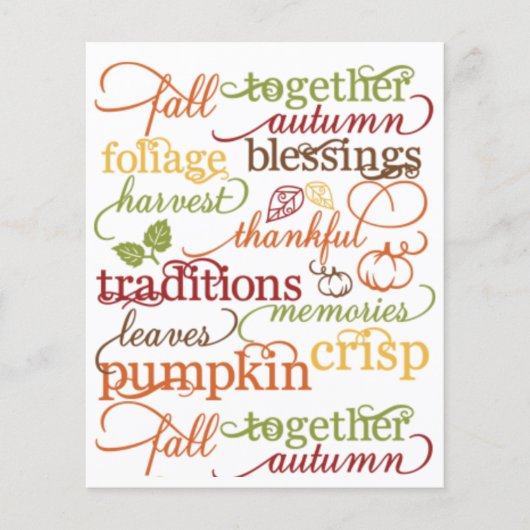 fall together
autumn
foliage blessings
harvest
thankful
traditions
memories
leaves
crisp
pumpkin
fall together
autumn